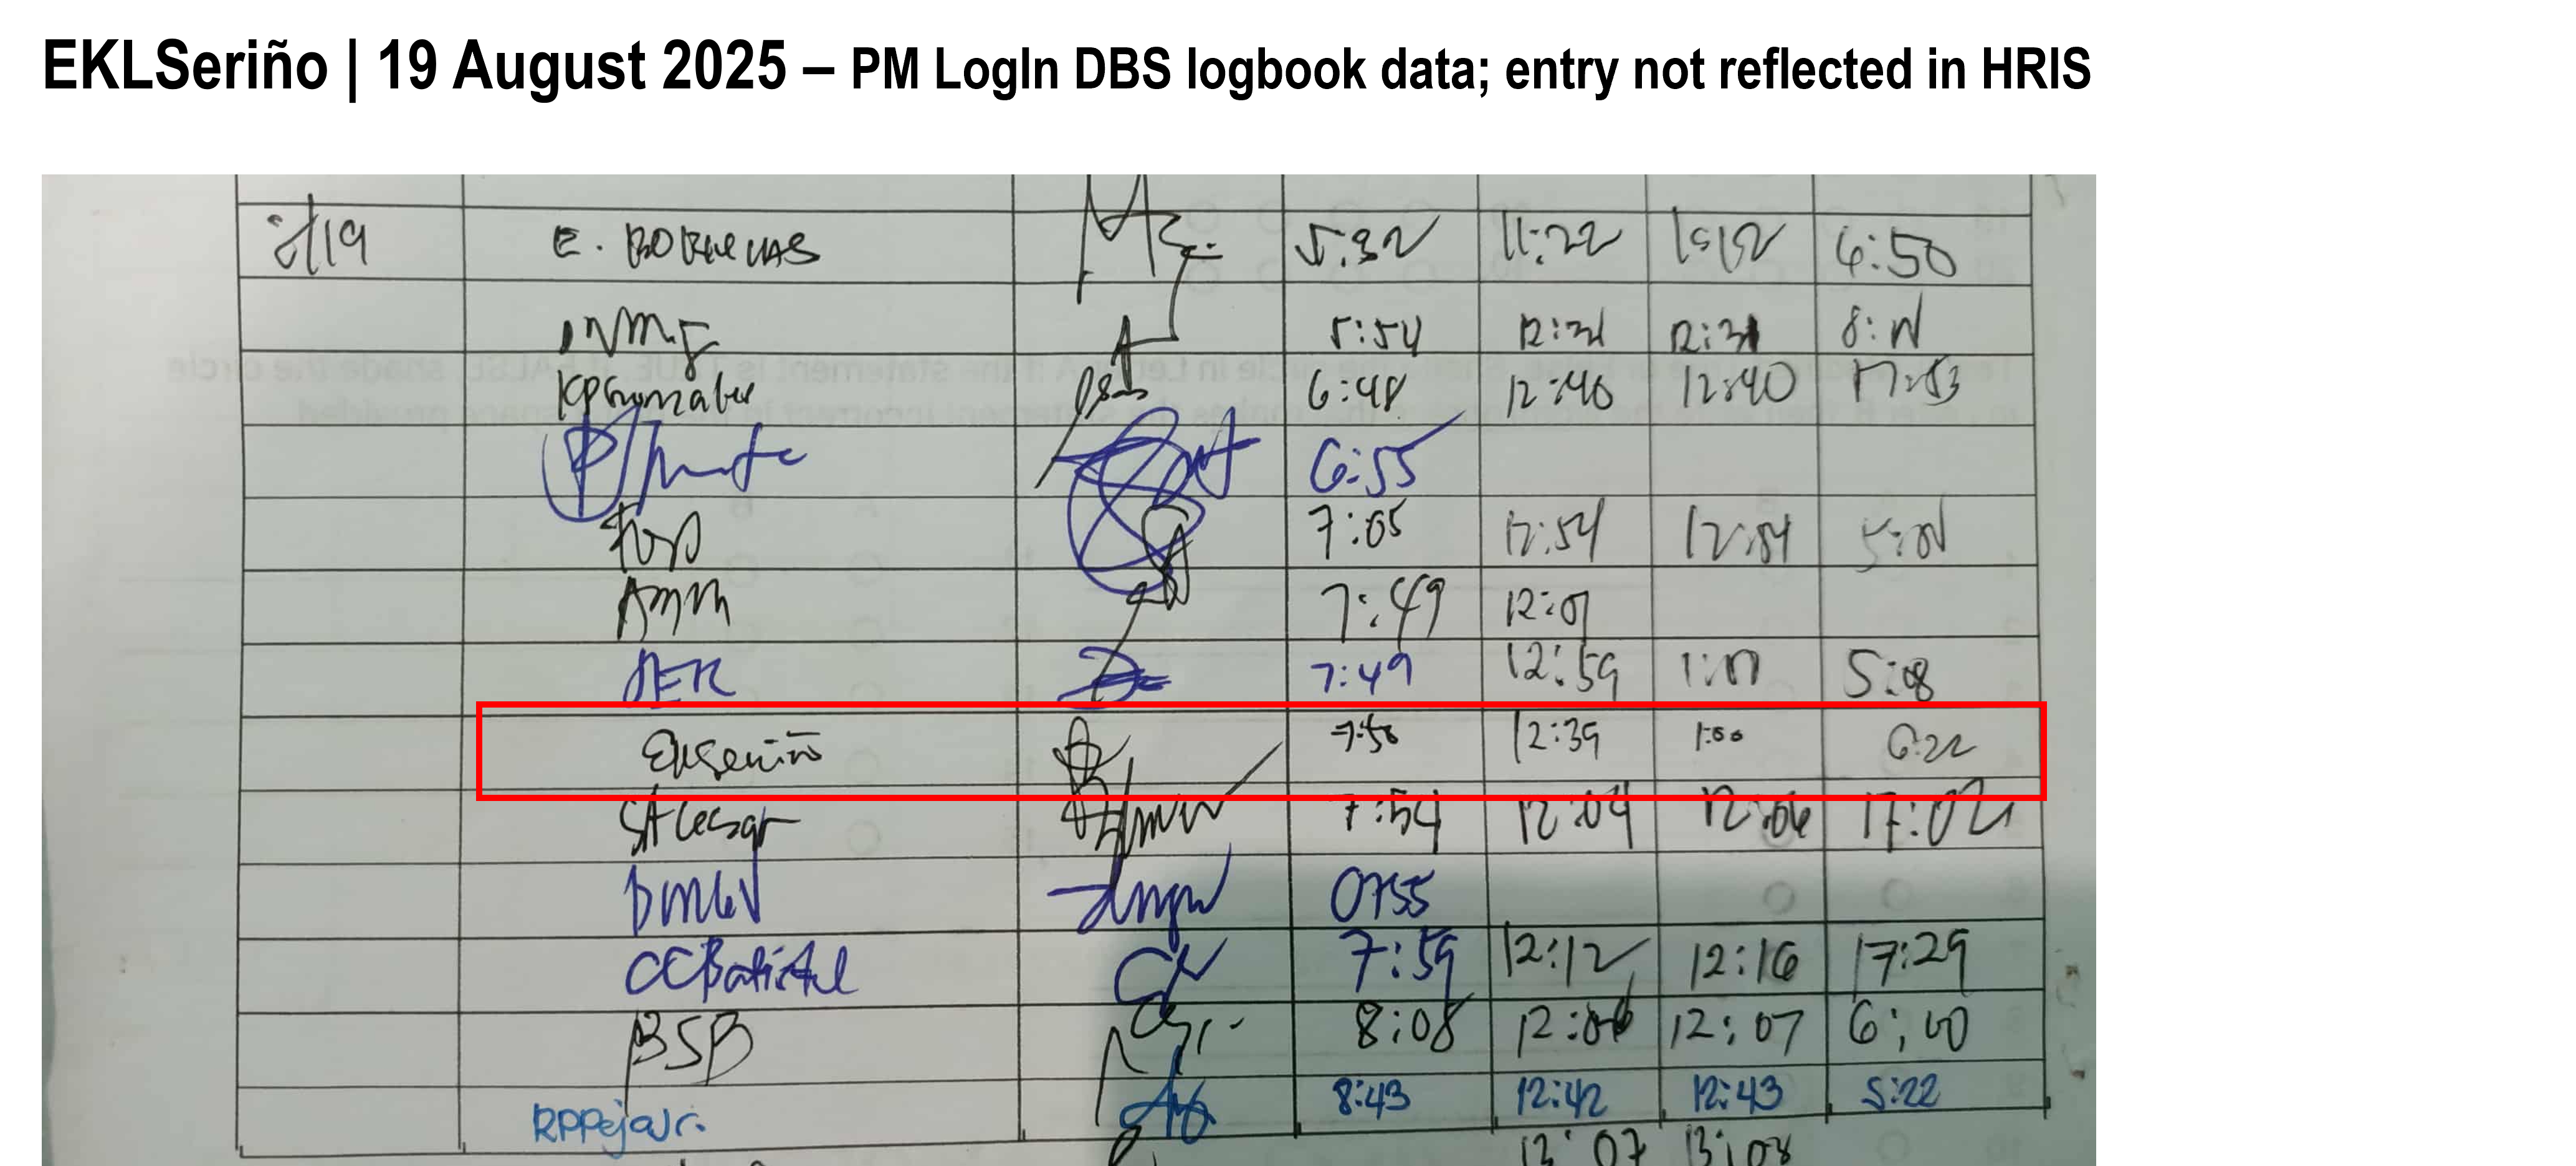 EKLSeriño | 19 August 2025 – PM LogIn DBS logbook data; entry not reflected in HRIS
8/19 E. 5:32 11:22 6:50
5:54 12:31 12:31
6:48 12:40 12:40 17:53
6:55
7:05 12:54 12:54
AMM 7:49 12:01
JER 7:49 12:59 5:08
EKLSeriño 7:50 12:39 1:00 6:22
SACesar 7:54 12:04 12:06 17:02
0755
CCBatistel 7:59 12:12 12:16 17:29
BSB 8:08 12:06 12:07 6:00
RPPejaJr. 8:43 12:42 12:43 5:22
13:07 13:08